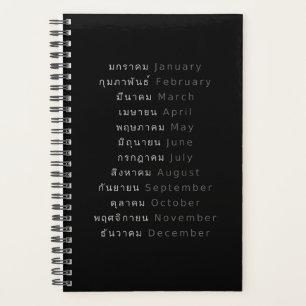 มกราคม January
กุมภาพันธ์ February
มีนาคม March
เมษายน April
พฤษภาคม May
มิถุนายน June
กรกฎาคม July
สิงหาคม August
กันยายน September
ตุลาคม October
พฤศจิกายน November
ธันวาคม December